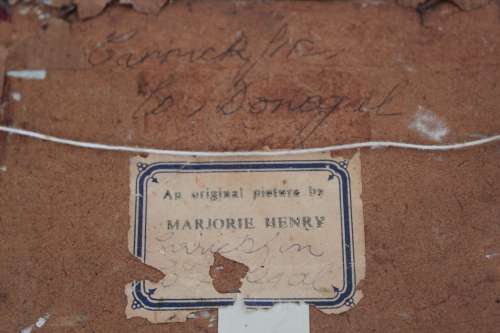 Carrick fin,
Co. Donegal
An original picture by
MARJORIE HENRY
Carrickfin